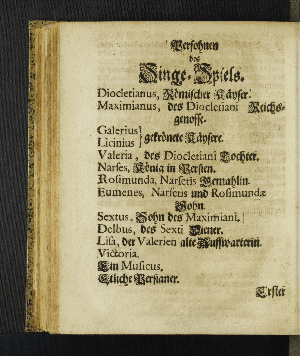 Persohnen
des
Singe-Spiels.
Diocletianus, Römischer Käyser.
Maximianus, des Diocletiani Reichs-
genosse.
Galerius } gekrönete Käysere.
Licinius
Valeria, des Diocletiani Tochter.
Narses, König in Persien.
Rosimunda, Narsetis Gemahlin.
Eumenes, Narsetis und Rosimundæ
Sohn.
Sextus, Sohn des Maximiani.
Delbus, des Sexti Diener.
Lisa, der Valerien alte Auffwarterin.
Victoria.
Ein Musicus.
Etliche Persianer.
Erster